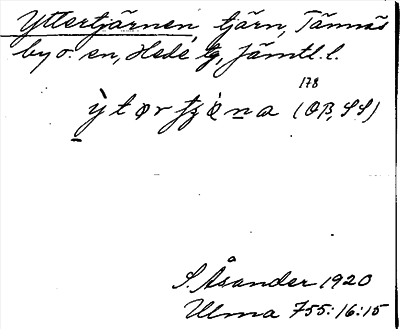 Yttertjärnen, tjärn, Tännäs
by o. en, Hede tg, Jämtl. l.
178
(OB, SS)
S. Åsander 1920
Ulma 755:16:15